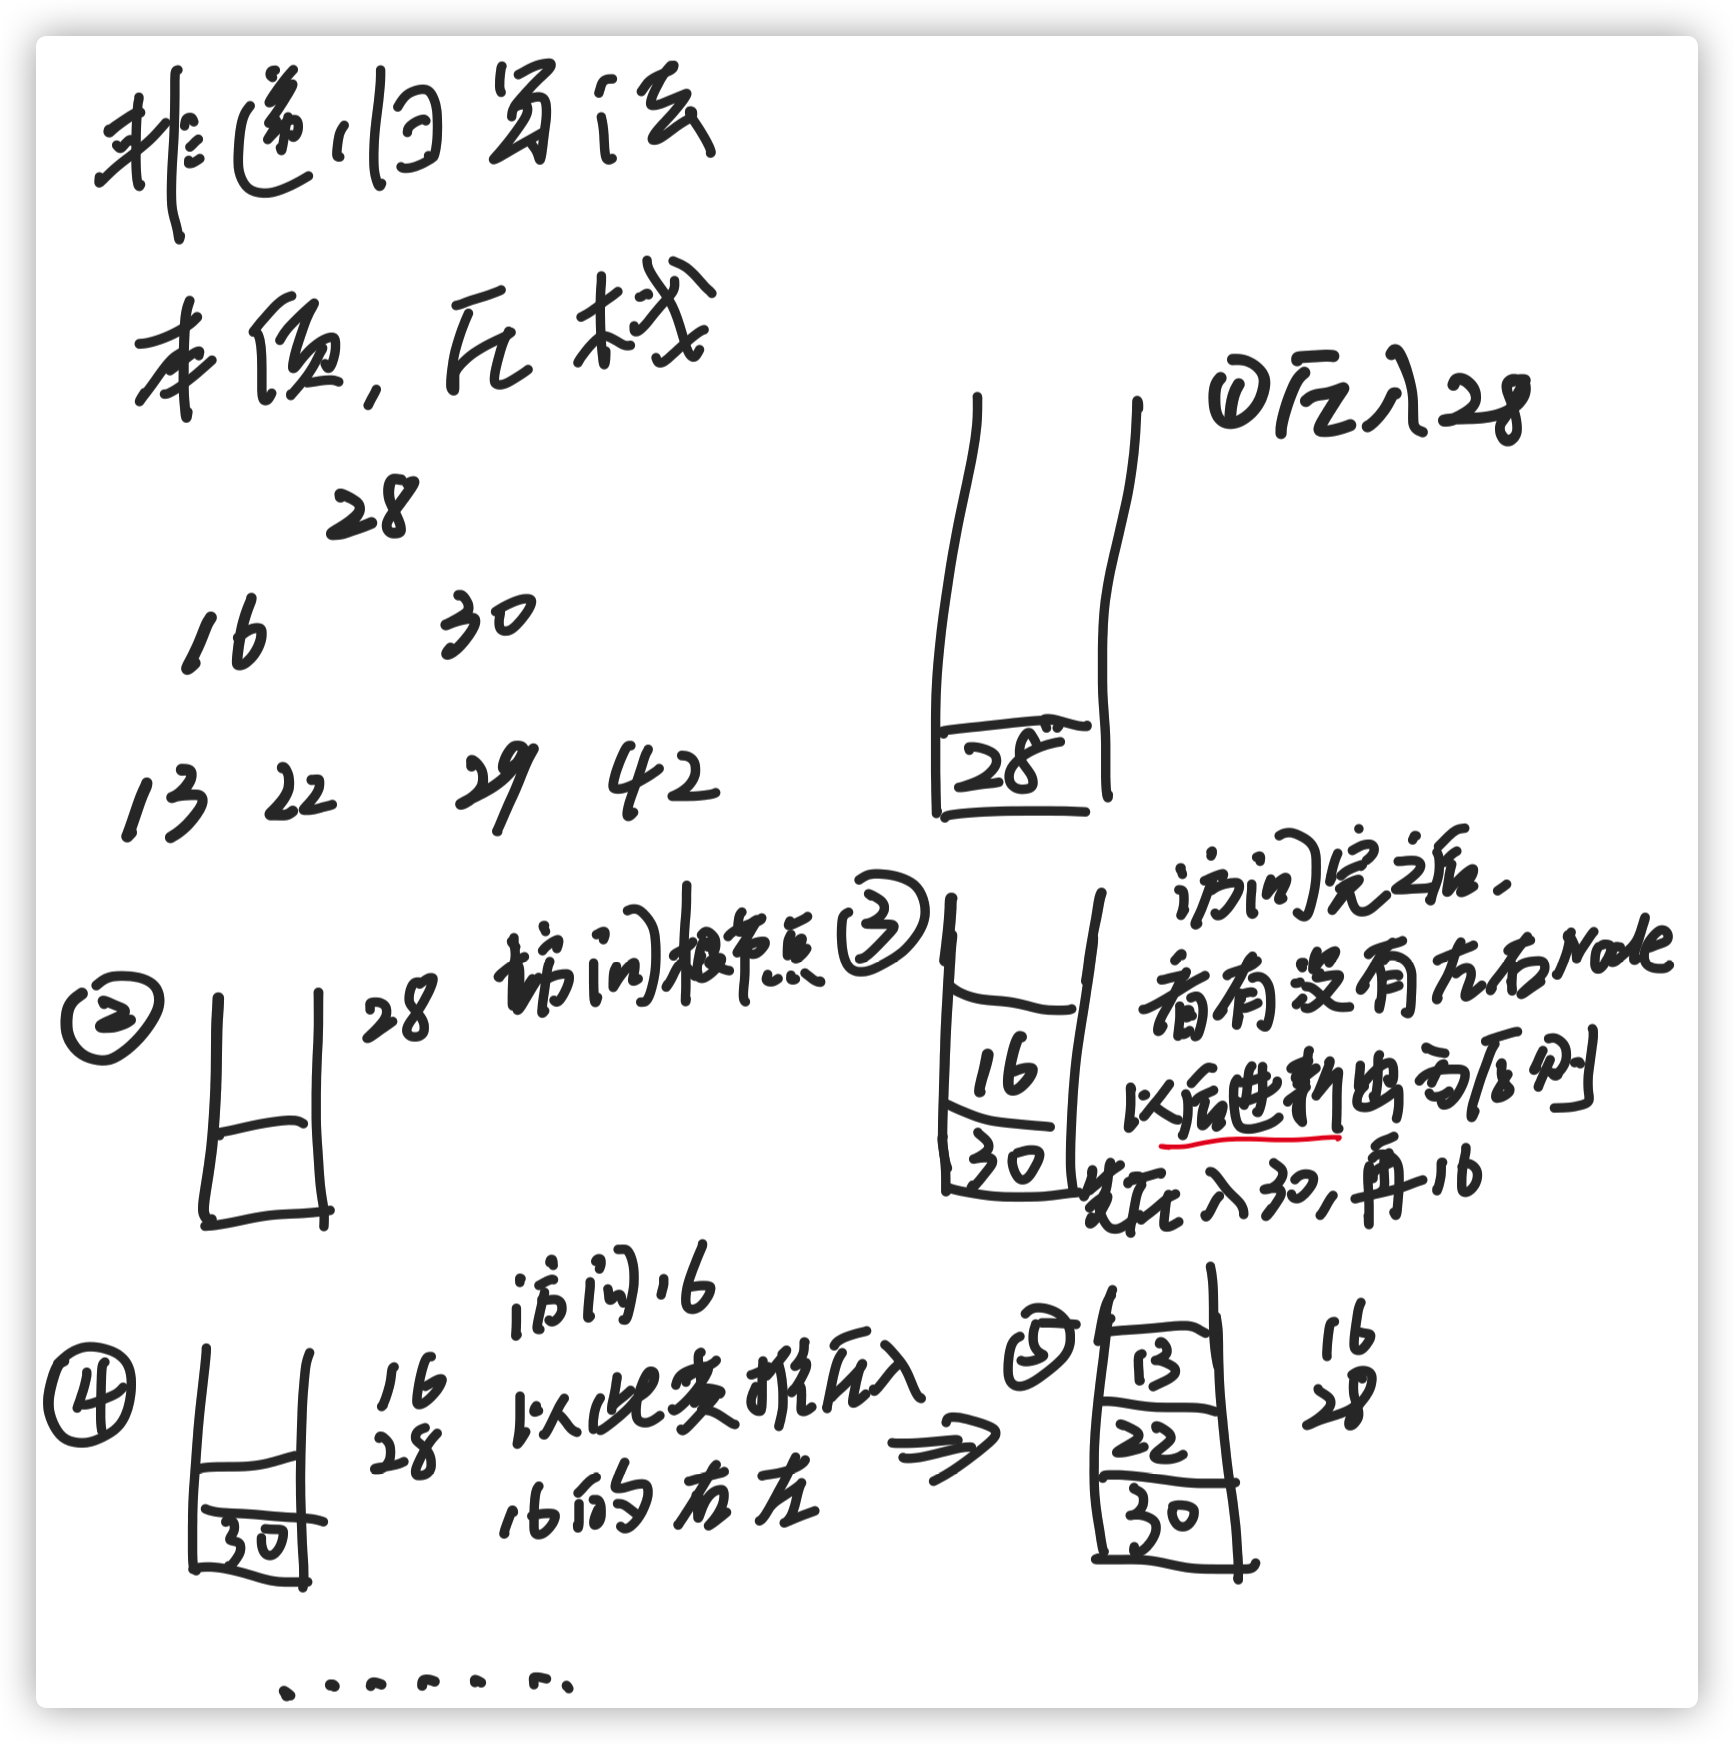 非递归算法
本质，压栈
28
16 30
13 22 29 42
①压入28
28
② 28 访问根节点
③ 访问完之后.
看有没有左右Node
以后进新出为原则
先压入30,再16
16
30
④ 16
28
30
访问16
以此类推压入
16的右左
⑤ 16
28
13
22
30
.......